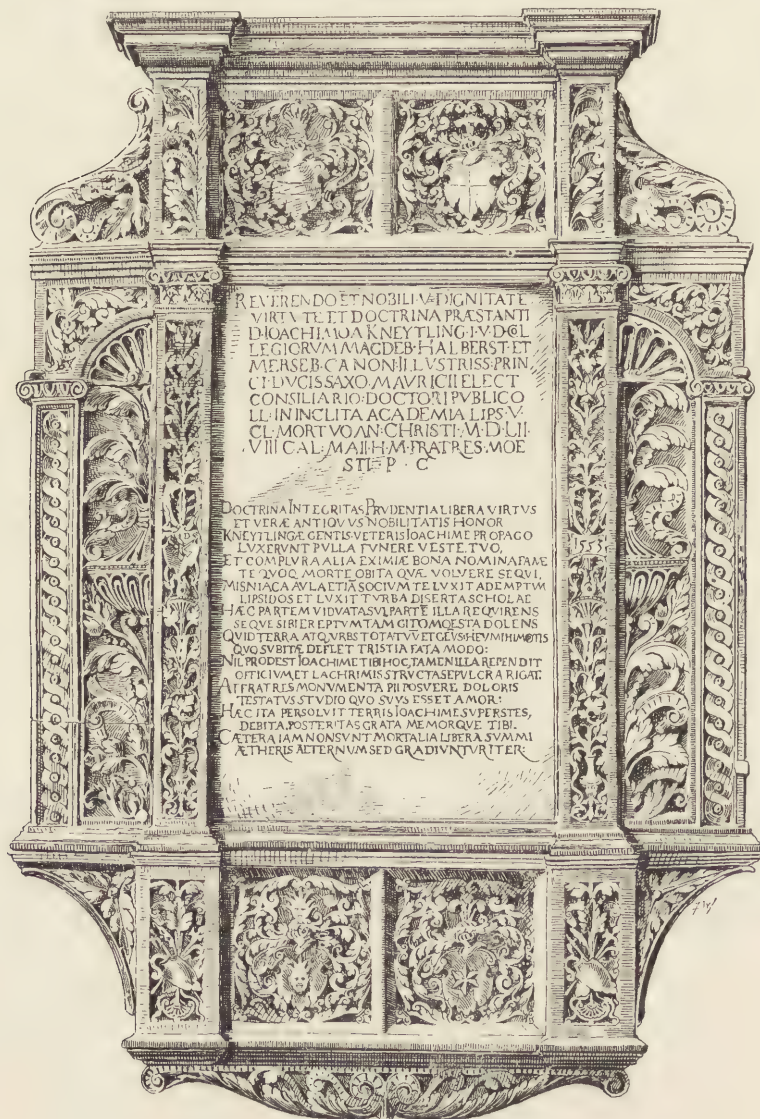 REVERENDO ET NOBILI·V·DIGNITATE
VIRTVTE ET DOCTRINA PRÆSTANTI
D·IOACHIMO A KNEYTLING·I·V·D·COL
LEGIORVM MAGDEB·HALBERST·ET
MERSEB·CANON·ILLVSTRISS·PRIN
CI·DVCIS SAXO·MAVRICII ELECT
CONSILIARIO·DOCTORI PVBLICO
LL·IN INCLITA ACADEMIA LIPS·V·
CL·MORTVO AN·CHRISTI·M·D·LII·
·VIII CAL·MAII·H·M·FRATRES·MOE
STI·P·C
DOCTRINA INTEGRITAS PRVDENTIA LIBERA VIRTVS
ET VERÆ ANTIQVVS NOBILITATIS HONOR
KNEYTLINGÆ GENTIS VETERIS IOACHIME PROPAGO
LVXERVNT PVLLA FVNERE VESTE TVO,
ET COMPLVRA ALIA EXIMIÆ BONA NOMINA FAMÆ
TE QVOQ MORTE OBITA QVÆ VOLVERE SEQVI,
MISNIACA AVLA ETIĀ SOCIVM TE LVXIT ADEMPTVM
LIPSIDOS ET LVXIT TVRBA DISERTA SCHOLAE
HÆC PARTEM VIDVATA SVI PARTĒ ILLA REQVIRENS
SEQVE SIBI EREPTVM TAM CITO MOESTA DOLENS
QVID TERRA ATQ VRBS TOTA TVV̄ ET GEVS HEV MIHI MOTIS
QVO SVBITÆ DEFLET TRISTIA FATA MODO:
NIL PRODEST IOACHIME TIBI HOC, TAMEN ILLA REPENDIT
OFFICIVM, ET LACHRIMIS STRVCTA SEPVLCRA RIGAT.
AT FRATRES MONVMENTA PII POSVERE DOLORIS
TESTATVS STVDIO QVO SVVS ESSET AMOR:
HÆC ITA PERSOLVIT TERRIS IOACHIME SVPERSTES,
DEBITA POSTERITAS GRATA MEMORQVE TIBI.
CÆTERA IAM NON SVNT MORTALIA LIBERA SVMMI
ÆTHERIS ÆTERNVM SED GRADIVNTVR ITER:
1553